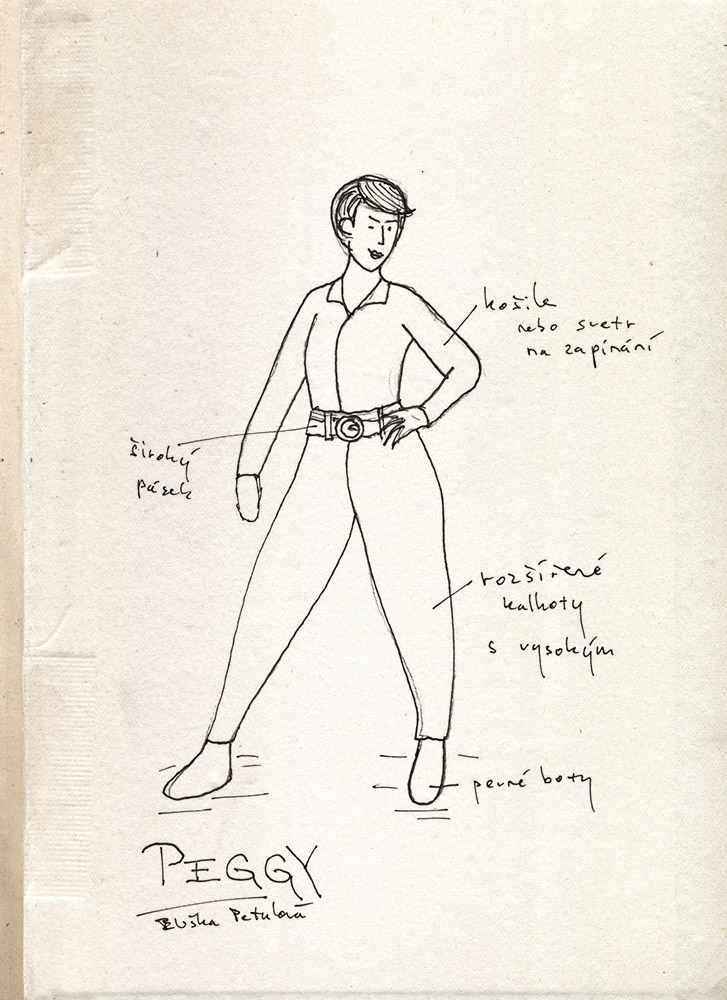 košile
nebo svetr
na zapínání
široký
pásek
rozšířené
kalhoty
s vysokým
pevné boty
PEGGY
Petulová